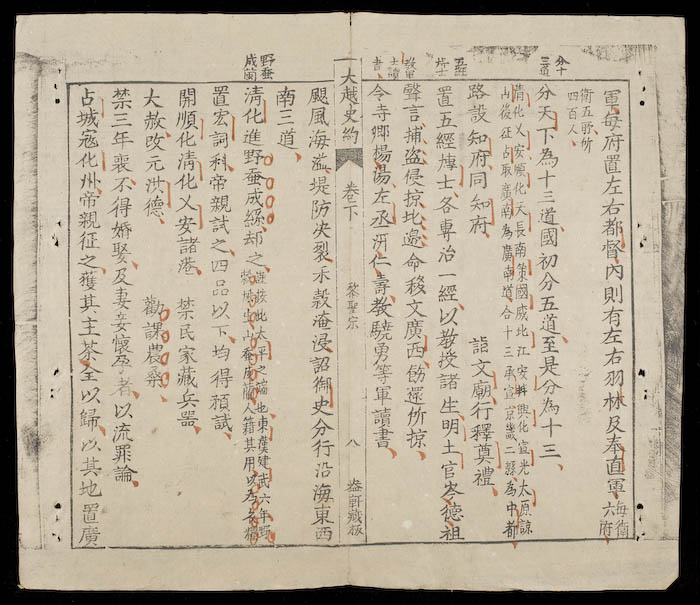 軍每府置左右都督內則有左右羽林及奉直軍每衛六府
衛五所所四百人
分十三道
分天下為十三道國初分五道至是分為十三
清化乂安順化天長南策國威北江安邦興化宣光太原諒
山後征占取廣南為廣南道合十三承宣京畿二縣為中都
路設知府同知府 詣文廟行釋奠禮
五經博士
置五經博士各專治一經以教授諸生明土官岑德祖
聲言捕盗侵掠北邊命移文廣西飭還所掠
教軍士讀書
令寺卿楊湯左丞開仁壽教驍勇等軍讀書
大越史約 卷下 黎聖宗 八 盎軒藏板
颶風海溢堤防决裂禾榖淹浸詔御史分行沿海東西
南三道
野蚕成蘭
清化進野蚕成絲却之
置宏詞科帝親試之四品以下均得預試
開順化清化乂安諸港 禁民家藏兵器
大赦改元洪德 勸課農桑
禁三年喪不得婚娶及妻妾懷孕者以流罪論
占城寇化州帝親征之獲其主茶全以歸以其地置廣